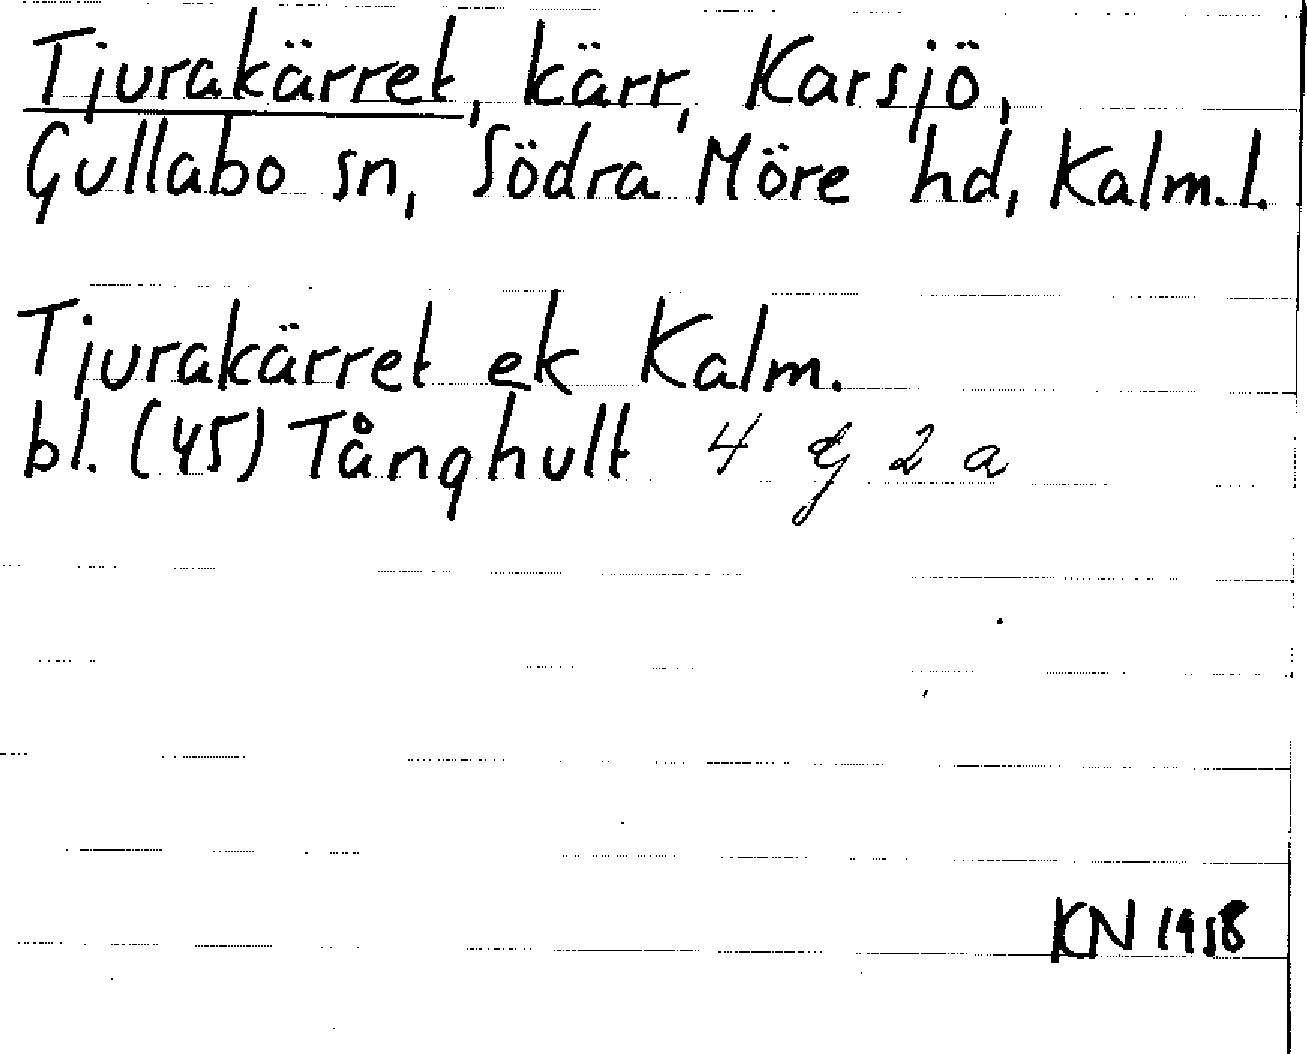 Tjurakärret, kärr, Karsjö,
Gullabo sn, Södra Möre hd, Kalm.l.
Tjurakärret ek Kalm.
bl. (45) Tånghult 4 g 2 a
KN 1958